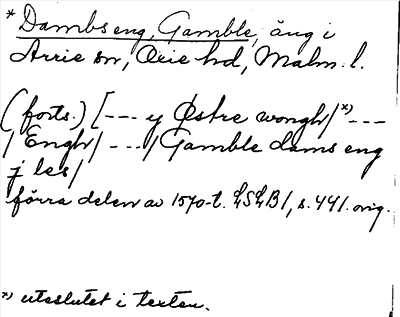 * Dambs eng, Gamble, äng i
Arrie sn, Oxie hd, Malm. l.
(forts.) [--- y Østre wongh/*) ---
/ Engh/ --- / Gamble dams eng
j les/
förra delen av 1570-t. LSLB1, s. 441. orig.
*) uteslutet i texten.